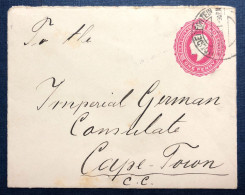 To the
Imperial German
Consulate
Cape-Town
C.C.
ONE PENNY